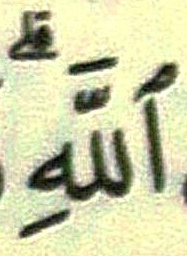 ٱللَّهِۗ